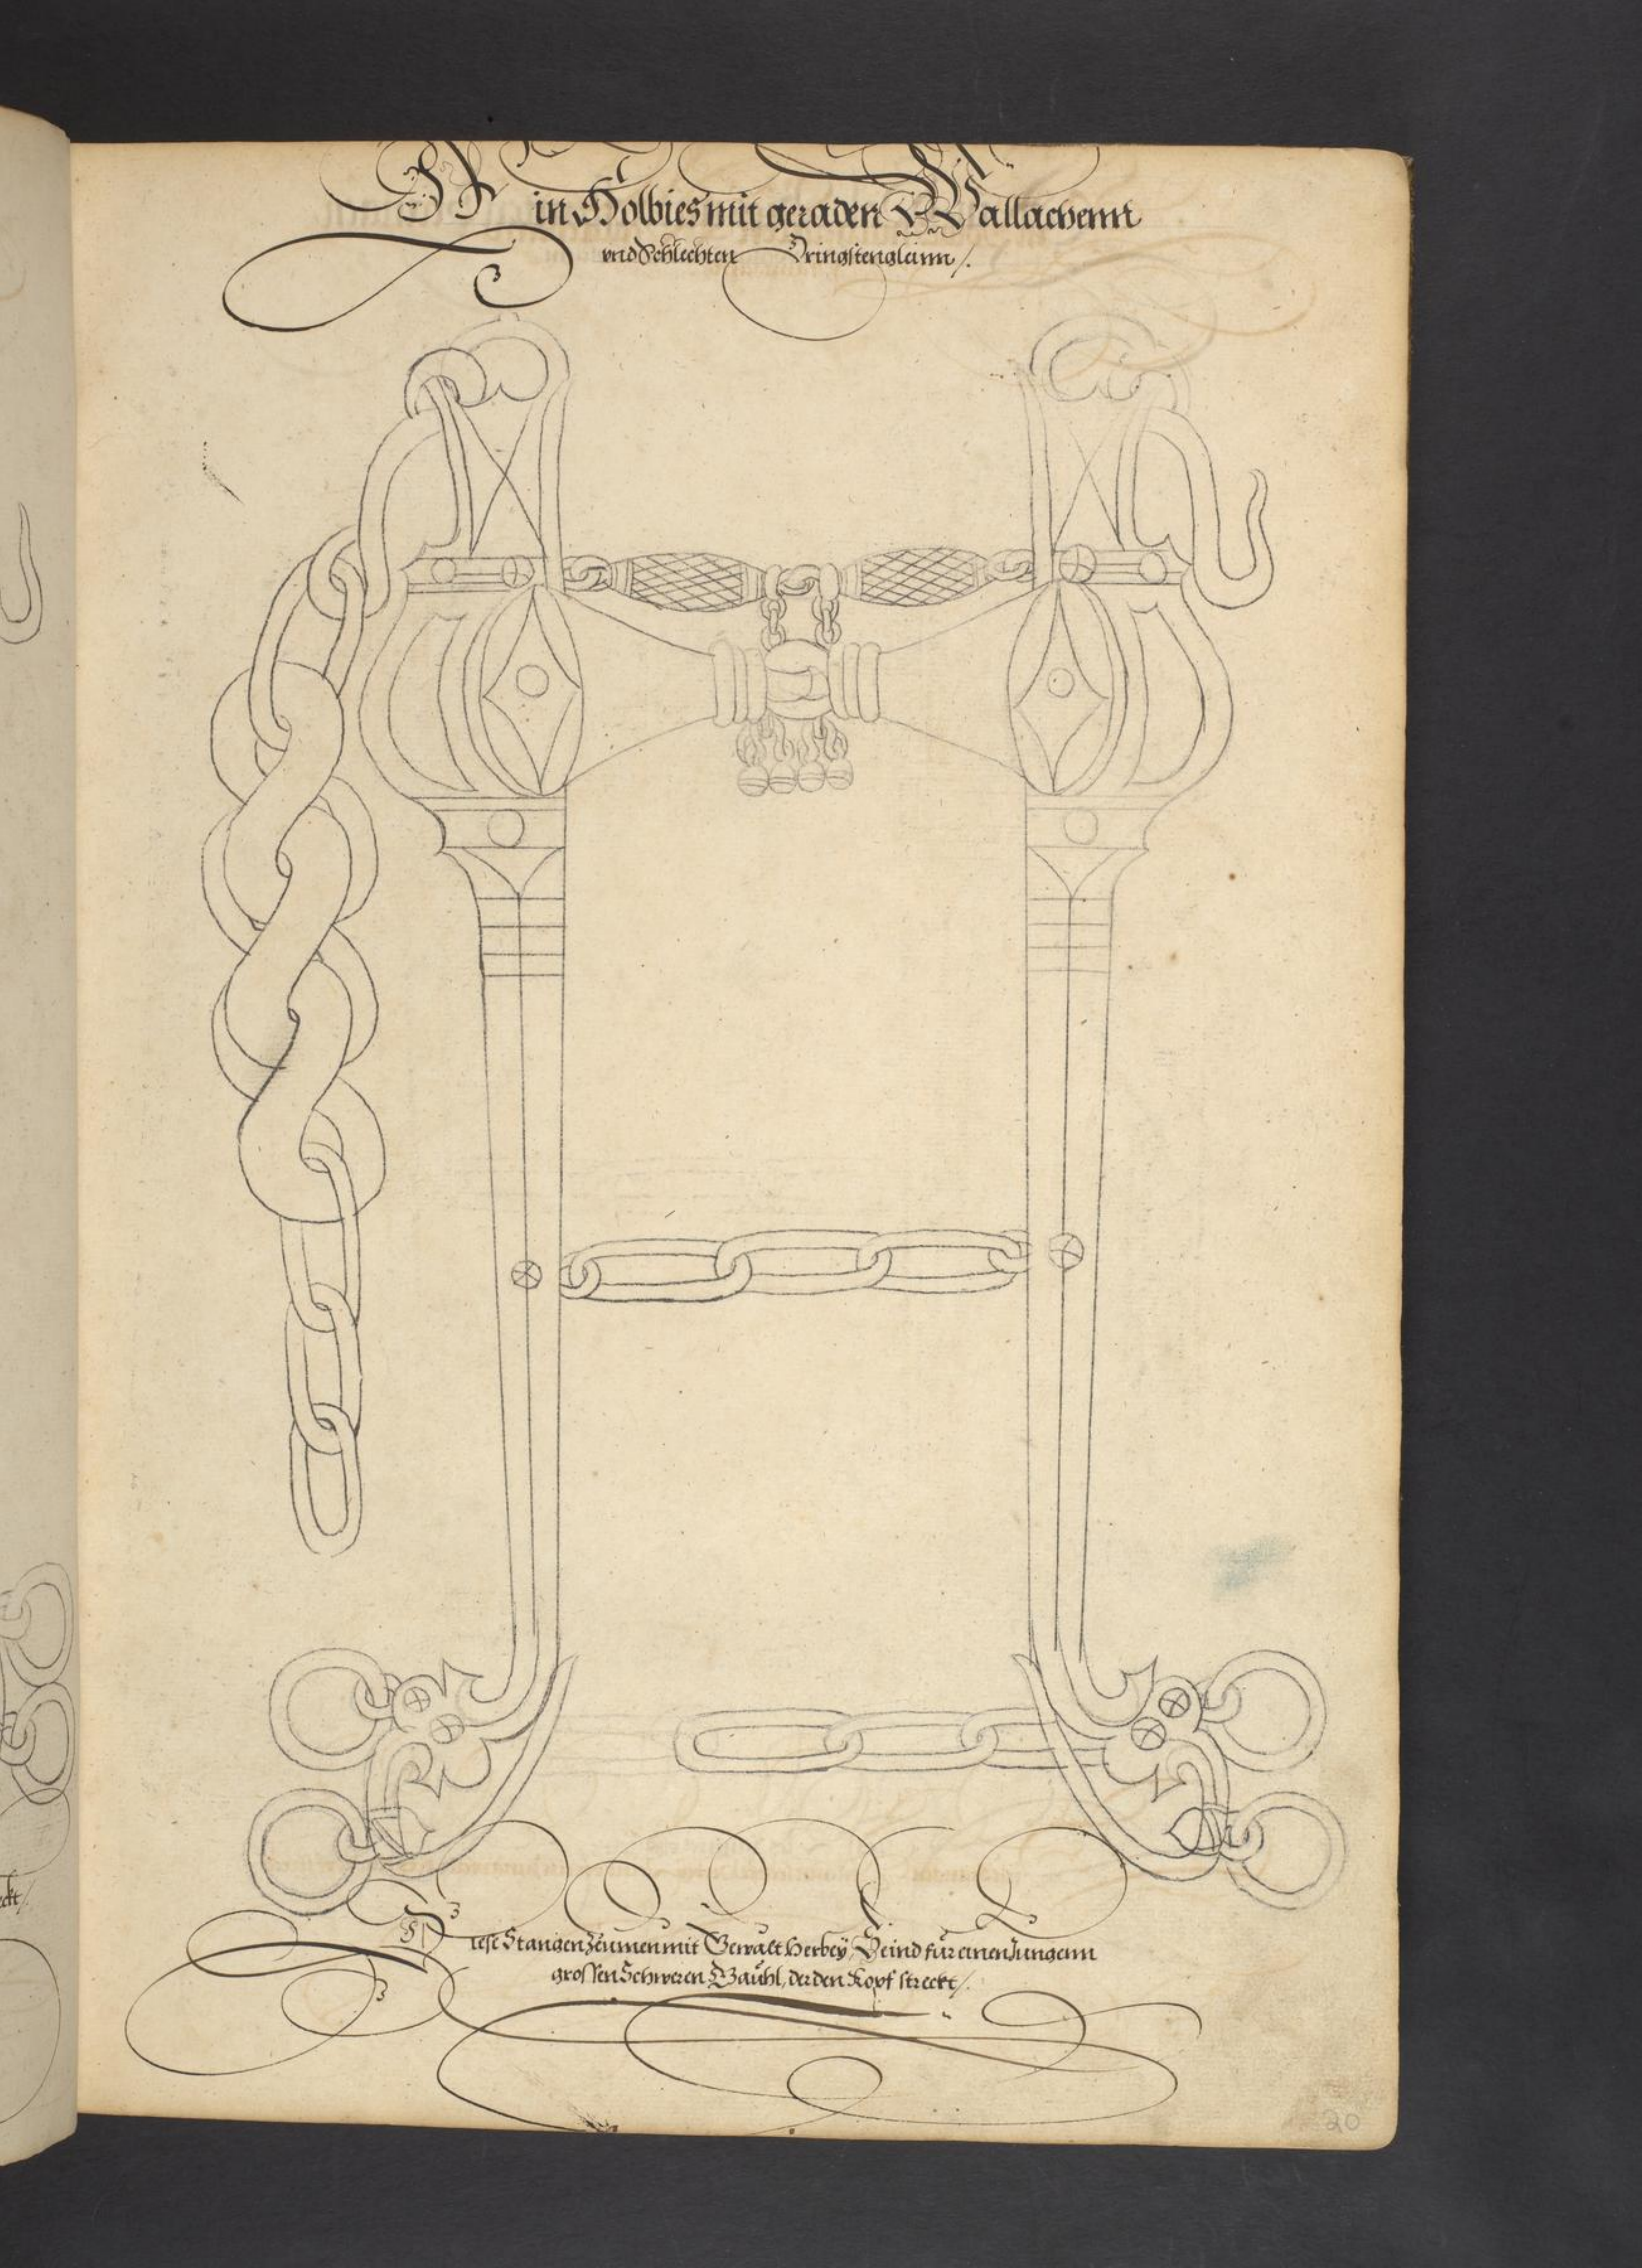 Ein Holbies mit geraden Wallachenn
vnd Schlechten Dringstengleinn /.
Diese Stangen Zeümen mit Gewalt Herbeÿ, Seind für einen Jungenn
grossen Schweren Gaühl, der den Kopf streckt /.
20